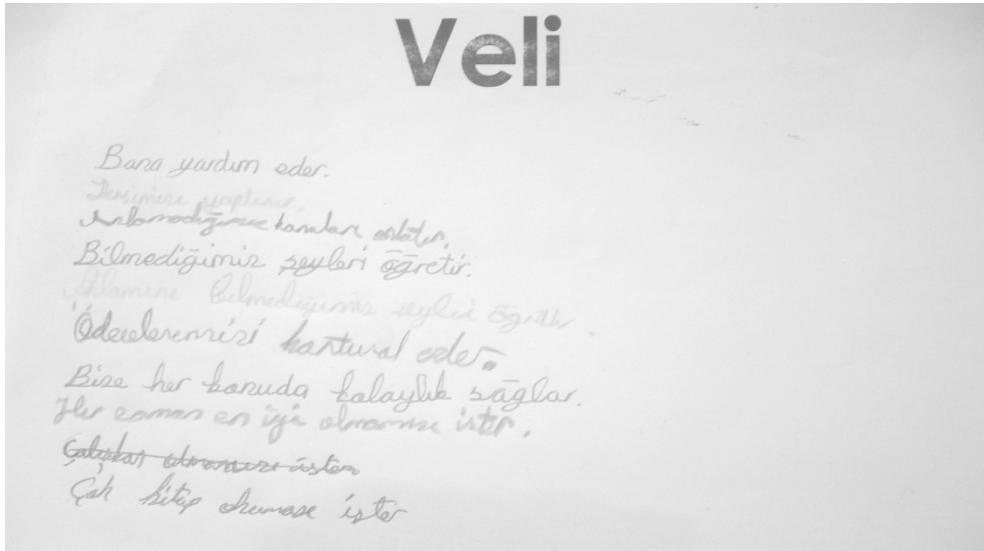 Veli
Bana yardım eder.
Dersimizi yaptırır.
Anlamadığımız konuları anlatır.
Bilmediğimiz şeyleri öğretir.
Bilmediğimiz şeyleri öğretir.
Ödevlerimizi kontural eder.
Bize her konuda kolaylık sağlar.
Her zaman en iyi olmamızı ister.
Çalışkan olmamızı ister
Çok kitap okumamızı ister